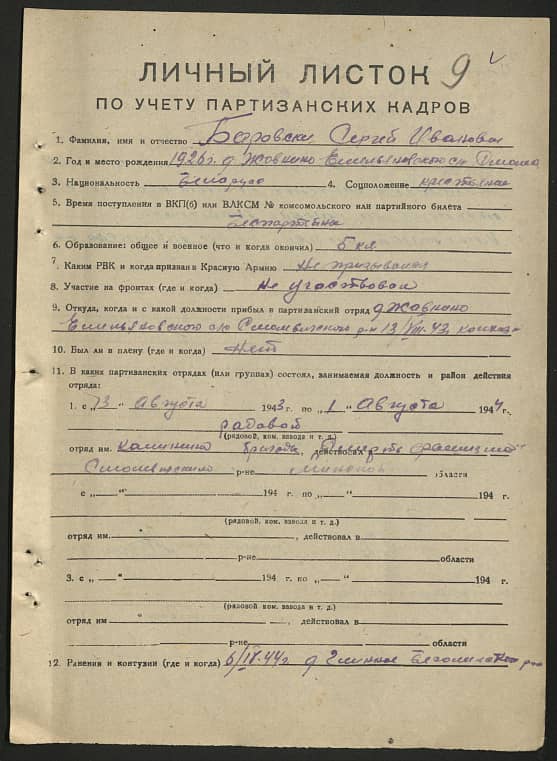 ЛИЧНЫЙ ЛИСТОК 9
ПО УЧЕТУ ПАРТИЗАНСКИХ КАДРОВ
1. Фамилия, имя и отчество Сергей Иванович
2. Год и место рождения 1926 г. д. Жовнино Емельяновского с/с
3. Национальность Беларус 4. Соцположение крестьянин
5. Время поступления в ВКП(б) или ВЛКСМ № комсомольского или партийного билета
Беспартейный
6. Образование: общее и военное (что и когда окончил) 5 кл
7. Каким РВК и когда призван в Красную Армию Не призывался
8. Участие на фронтах (где и когда) Не участвовал
9. Откуда, когда и с какой должности прибыл в партизанский отряд д. Жовнино
Емельяновского с/с Смолевичского р-н 13/VIII-43,
10. Был ли в плену (где и когда) Нет
11. В каких партизанских отрядах (или группах) состоял, занимаемая должность и район действия
отряда:
1. с „13 “ Августа 1943 г. по „1 “ Августа 1944 г.,
рядовой
(рядовой, ком. взвода и т. д.)
отряд им. Калинина бригады, действовал в
Смолевичского р-не Минской области
с „ — “ 194 г. по „ — “ 194 г.
(рядовой, ком. взвода и т. д.)
отряд им. , действовал в
р-не области
3. с „ — “ 194 г. по „ — “ 194 г.
(рядовой, ком. взвода и т. д.)
отряд им , действовал в
р-не области
12. Ранения и контузии (где и когда) 6/IV-44 г. д